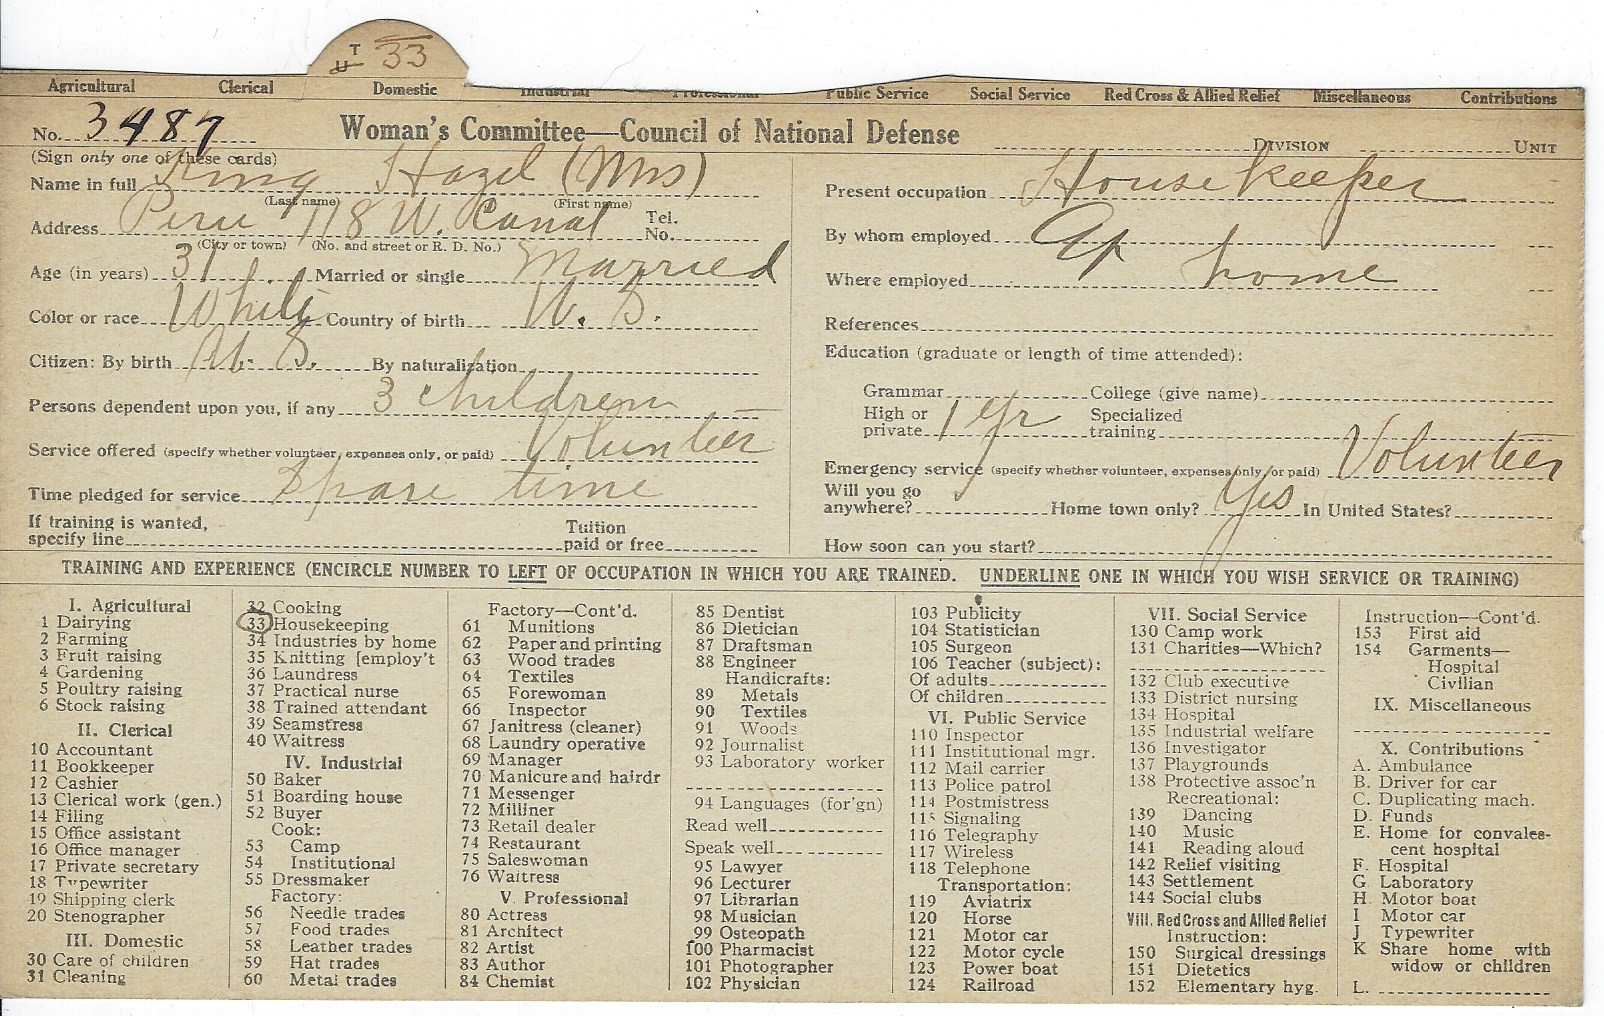 T
U 33
Agricultural Clerical Domestic Industrial Professional Public Service Social Service Red Cross & Allied Relief Miscellaneous Contributions
No. 3487 Woman's Committee—Council of National Defense DIVISION UNIT
(Sign only one of these cards)
Name in full King Hazel (Mrs)
(Last name) (First name)
Address Peru 118 W. Canal Tel. No.
(City or town) (No. and street or R. D. No.)
Age (in years) 31 Married or single Married
Color or race White Country of birth U. S.
Citizen: By birth U. S. By naturalization
Persons dependent upon you, if any 3 children
Service offered (specify whether volunteer, expenses only, or paid) Volunteer
Time pledged for service Spare time
If training is wanted, specify line Tuition paid or free
Present occupation Housekeeper
By whom employed At
Where employed home
References
Education (graduate or length of time attended):
Grammar College (give name)
High or private 1 yr Specialized training
Emergency service (specify whether volunteer, expenses only or paid) Volunteer
Will you go anywhere? Home town only? Yes In United States?
How soon can you start?
TRAINING AND EXPERIENCE (ENCIRCLE NUMBER TO LEFT OF OCCUPATION IN WHICH YOU ARE TRAINED. UNDERLINE ONE IN WHICH YOU WISH SERVICE OR TRAINING)
I. Agricultural
1 Dairying
2 Farming
3 Fruit raising
4 Gardening
5 Poultry raising
6 Stock raising
II. Clerical
10 Accountant
11 Bookkeeper
12 Cashier
13 Clerical work (gen.)
14 Filing
15 Office assistant
16 Office manager
17 Private secretary
18 Typewriter
19 Shipping clerk
20 Stenographer
III. Domestic
30 Care of children
31 Cleaning
32 Cooking
33 Housekeeping
34 Industries by home
35 Knitting [employ't
36 Laundress
37 Practical nurse
38 Trained attendant
39 Seamstress
40 Waitress
IV. Industrial
50 Baker
51 Boarding house
52 Buyer
Cook:
53 Camp
54 Institutional
55 Dressmaker
Factory:
56 Needle trades
57 Food trades
58 Leather trades
59 Hat trades
60 Metal trades
Factory—Cont'd.
61 Munitions
62 Paper and printing
63 Wood trades
64 Textiles
65 Forewoman
66 Inspector
67 Janitress (cleaner)
68 Laundry operative
69 Manager
70 Manicure and hairdr
71 Messenger
72 Milliner
73 Retail dealer
74 Restaurant
75 Saleswoman
76 Waitress
V. Professional
80 Actress
81 Architect
82 Artist
83 Author
84 Chemist
85 Dentist
86 Dietician
87 Draftsman
88 Engineer
Handicrafts:
89 Metals
90 Textiles
91 Woods
92 Journalist
93 Laboratory worker
94 Languages (for'gn)
Read well
Speak well
95 Lawyer
96 Lecturer
97 Librarian
98 Musician
99 Osteopath
100 Pharmacist
101 Photographer
102 Physician
103 Publicity
104 Statistician
105 Surgeon
106 Teacher (subject):
Of adults
Of children
VI. Public Service
110 Inspector
111 Institutional mgr.
112 Mail carrier
113 Police patrol
114 Postmistress
115 Signaling
116 Telegraphy
117 Wireless
118 Telephone
Transportation:
119 Aviatrix
120 Horse
121 Motor car
122 Motor cycle
123 Power boat
124 Railroad
VII. Social Service
130 Camp work
131 Charities—Which?
132 Club executive
133 District nursing
134 Hospital
135 Industrial welfare
136 Investigator
137 Playgrounds
138 Protective assoc'n
Recreational:
139 Dancing
140 Music
141 Reading aloud
142 Relief visiting
143 Settlement
144 Social clubs
VIII. Red Cross and Allied Relief
Instruction:
150 Surgical dressings
151 Dietetics
152 Elementary hyg.
Instruction—Cont'd.
153 First aid
154 Garments—
Hospital
Civilian
IX. Miscellaneous
X. Contributions
A. Ambulance
B. Driver for car
C. Duplicating mach.
D. Funds
E. Home for convales-
cent hospital
F. Hospital
G. Laboratory
H. Motor boat
I Motor car
J Typewriter
K Share home with
widow or children
L.